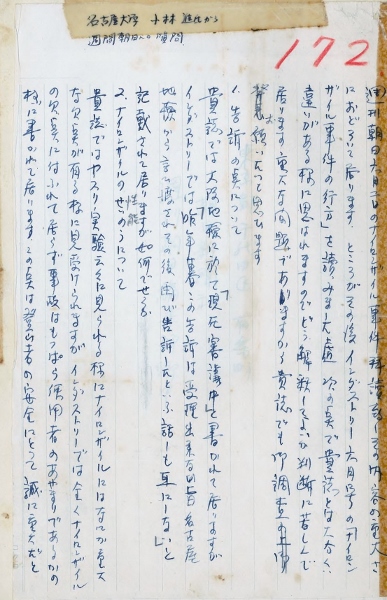 名古屋大学 小林 進化から
週間朝日への質問
172
週刊朝日六月 日のナイロンザイル事件 拝読致しその内容の重大さ
におどろいて居ります ところがその後インダストリー六月号の「ナイロン
ザイル事件の行方」を読みました處 次の点で貴誌とは大分くい
違いがある様に思はれますのでどう解釈してよいか判断に苦しんで
居ります 重大な問題でありますから貴誌でも御調査の上御
願いたいと思ひます
1. 告訴の点について
貴誌では大阪地検に於て「現在審議中」と書かれて居りますが
インダストリーでは「昨年暮この告訴は受理出来ない旨名古屋
地検から言い渡されその後再び告訴したといふ話しも耳にしない」と
記載されて居りますが如何でせうか
2. ナイロンザイルの性能について
貴誌ではヤスリ実験 に見られる様にナイロンザイルにはなにか重大
な欠点が有る様に見受けられますがインダストリーでは全くナイロンザイル
の欠点にはふれて居らず事故はもっぱら使用者のあやまりであるかの
様に書かれて居ります この点は登山者の安全にとって誠に重大だと